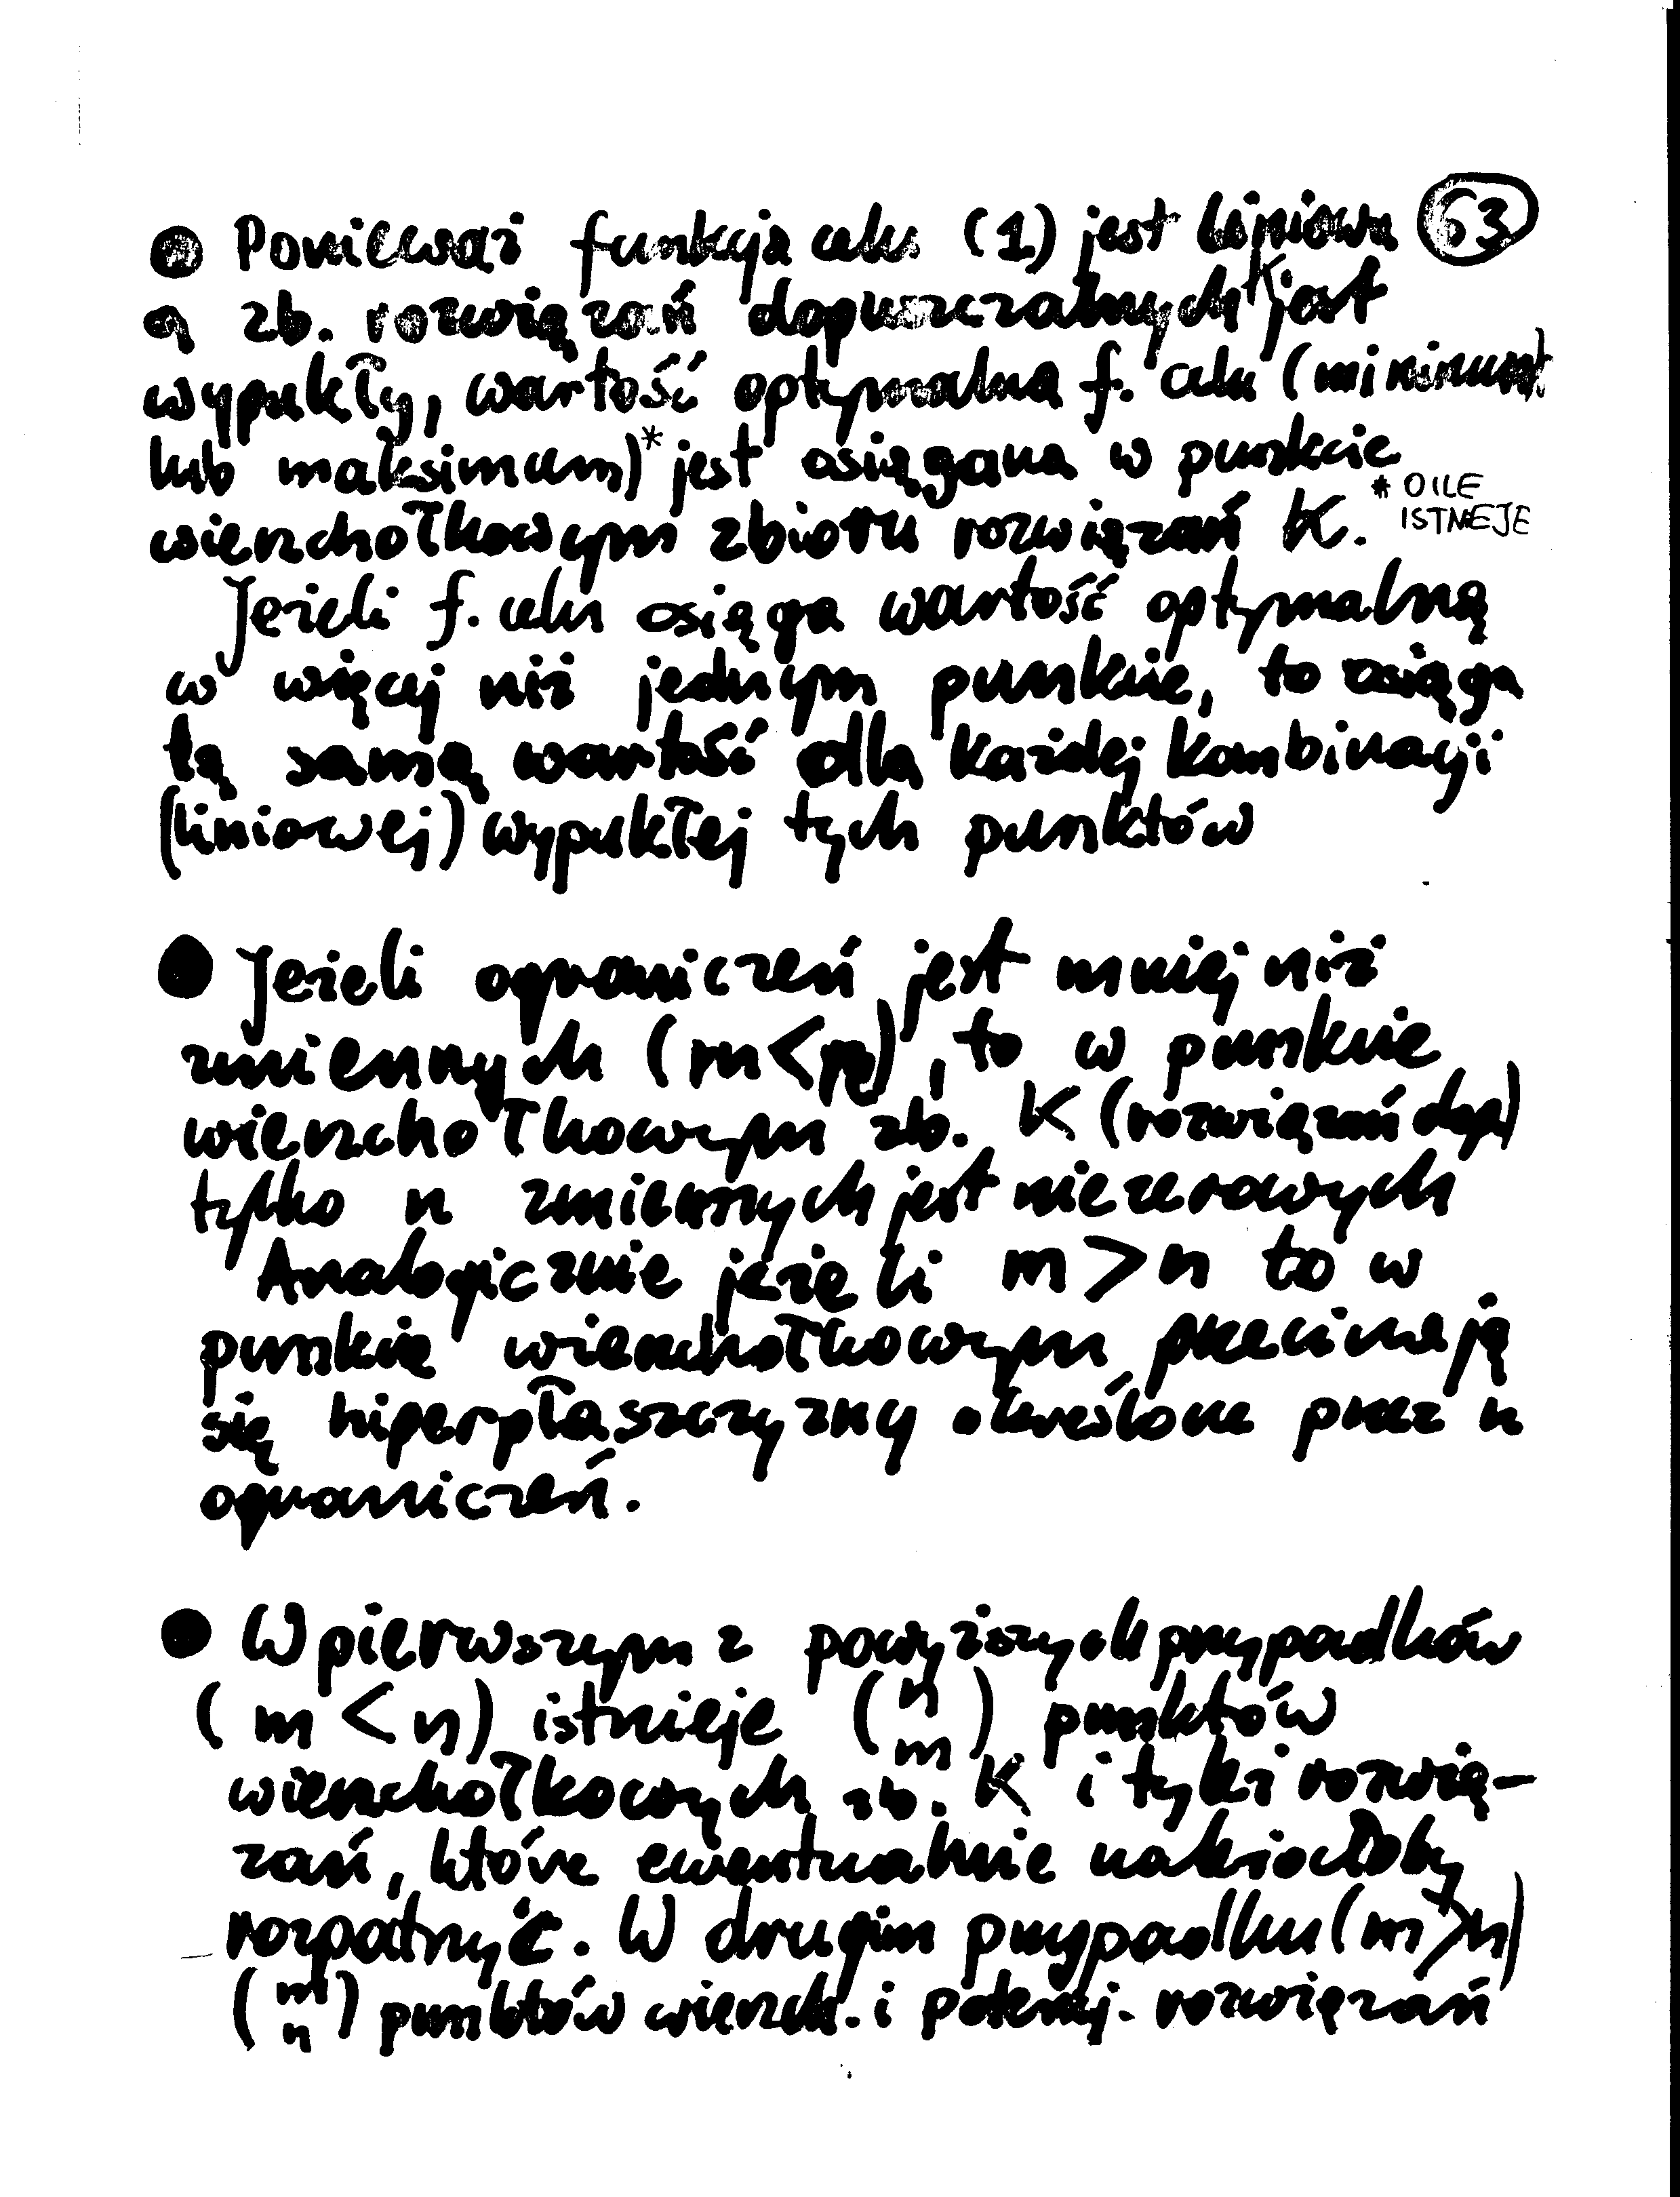 ● Ponieważ funkcja celu (1) jest liniowa 63
a zb. rozwiązań dopuszczalnych K jest
wypukły, wartość optymalna f. celu (minimum
lub maksimum)* jest osiągana w punkcie
wierzchołkowym zbioru rozwiązań K. * O ILE ISTNIEJE
Jeżeli f. celu osiąga wartość optymalną
w więcej niż jednym punkcie, to osiąga
tą samą wartość dla każdej kombinacji
(liniowej) wypukłej tych punktów
● Jeżeli ograniczeń jest mniej niż
zmiennych (m<n), to w punkcie
wierzchołkowym zb. K (rozwiązań dop)
tylko n zmiennych jest niezerowych
Analogicznie jeżeli m>n to w
punkcie wierzchołkowym przecinają
się hiperpłaszczyzny określone przez n
ograniczeń.
● W pierwszym z powyższych przypadków
(m<n) istnieje (n m) punktów
wierzchołkowych zb. K i tyleż rozwią-
zań, które ewentualnie należałoby
rozpatrzyć. W drugim przypadku (m>n)
(m n) punktów wierzch. i potencj. rozwiązań